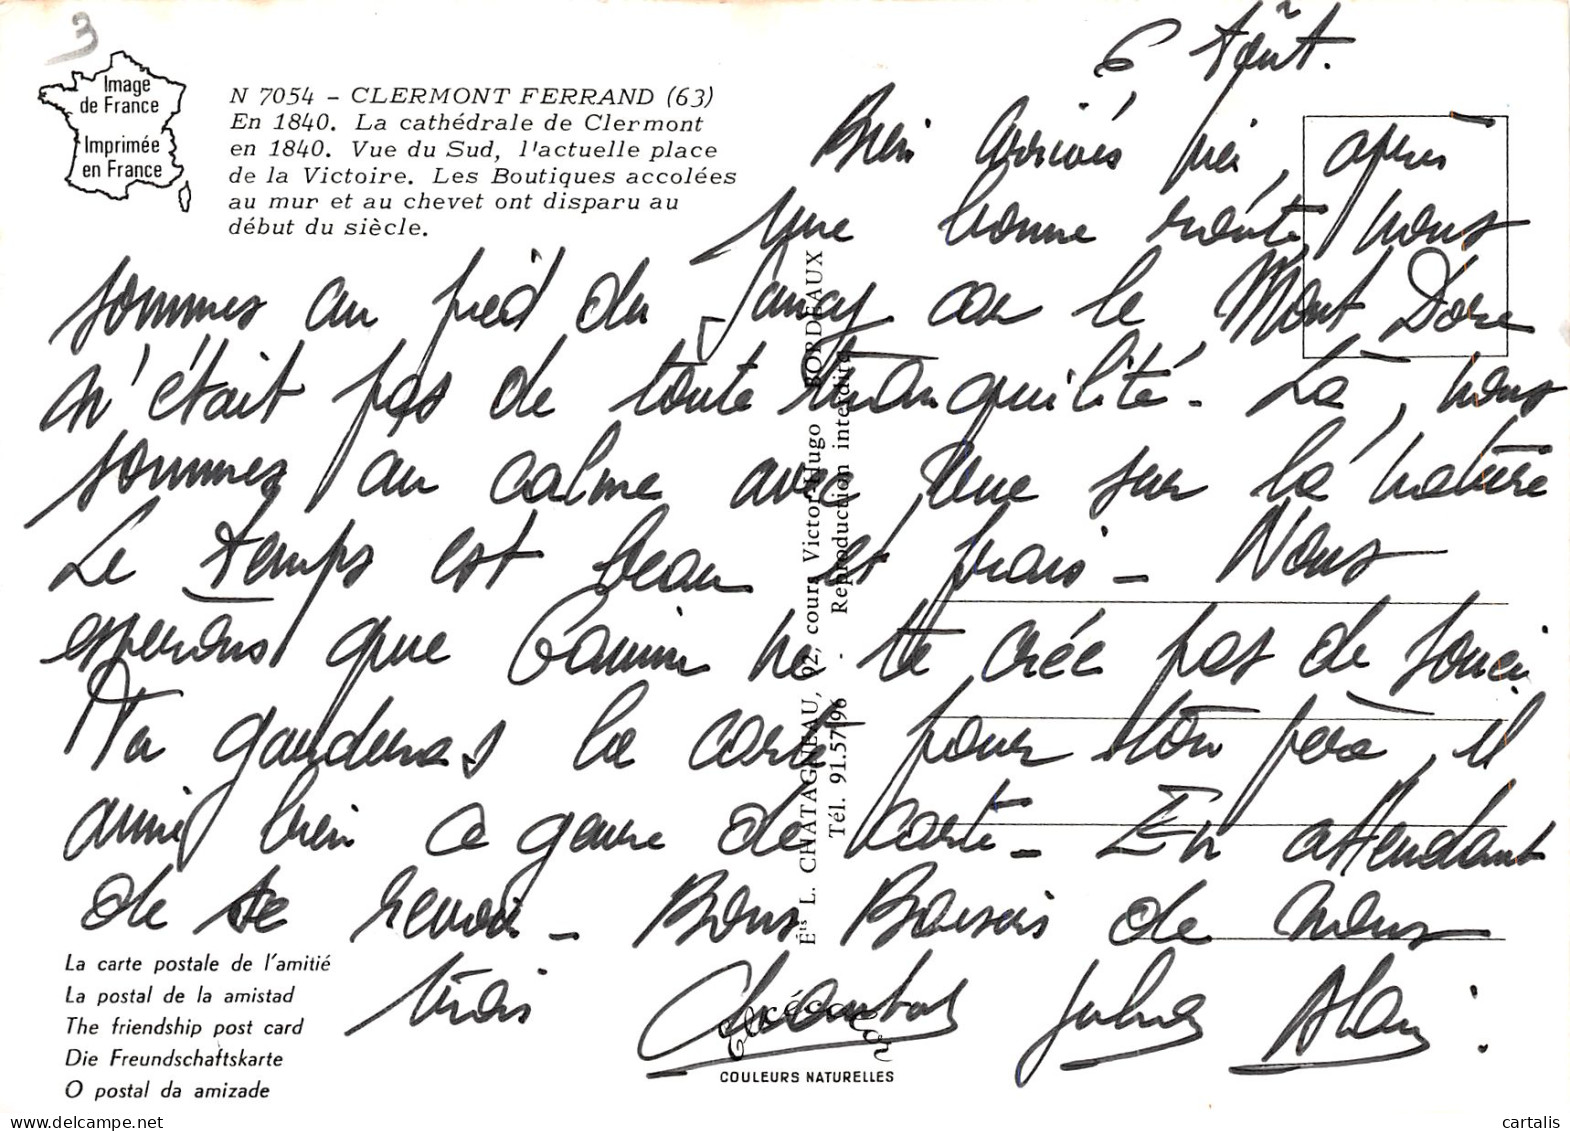 3
Image
de France
Imprimée
en France
N 7054 - CLERMONT FERRAND (63)
En 1840. La cathédrale de Clermont
en 1840. Vue du Sud, l'actuelle place
de la Victoire. Les Boutiques accolées
au mur et au chevet ont disparu au
début du siècle.
6 Août.
Bien arrivés ici, après
une bonne route, nous
sommes au pied du Sancy car le Mont Dore
n'était pas de toute tranquilité. Là, nous
sommes au calme avec vue sur la nature
Le temps est beau et frais - Nous
esperons que ne te crée pas de souci
Tu garderas la carte pour ton père, il
aime bien ce genre de carte - En attendant
de te revoir - Bons Baisers de nous
trois Chantal Alain.
Éts L. CHATAGNEAU, 92, cours Victor Hugo BORDEAUX
Tél. 91.57.96 - Reproduction interdite
La carte postale de l'amitié
La postal de la amistad
The friendship post card
Die Freundschaftskarte
O postal da amizade
COULEURS NATURELLES
cartalis